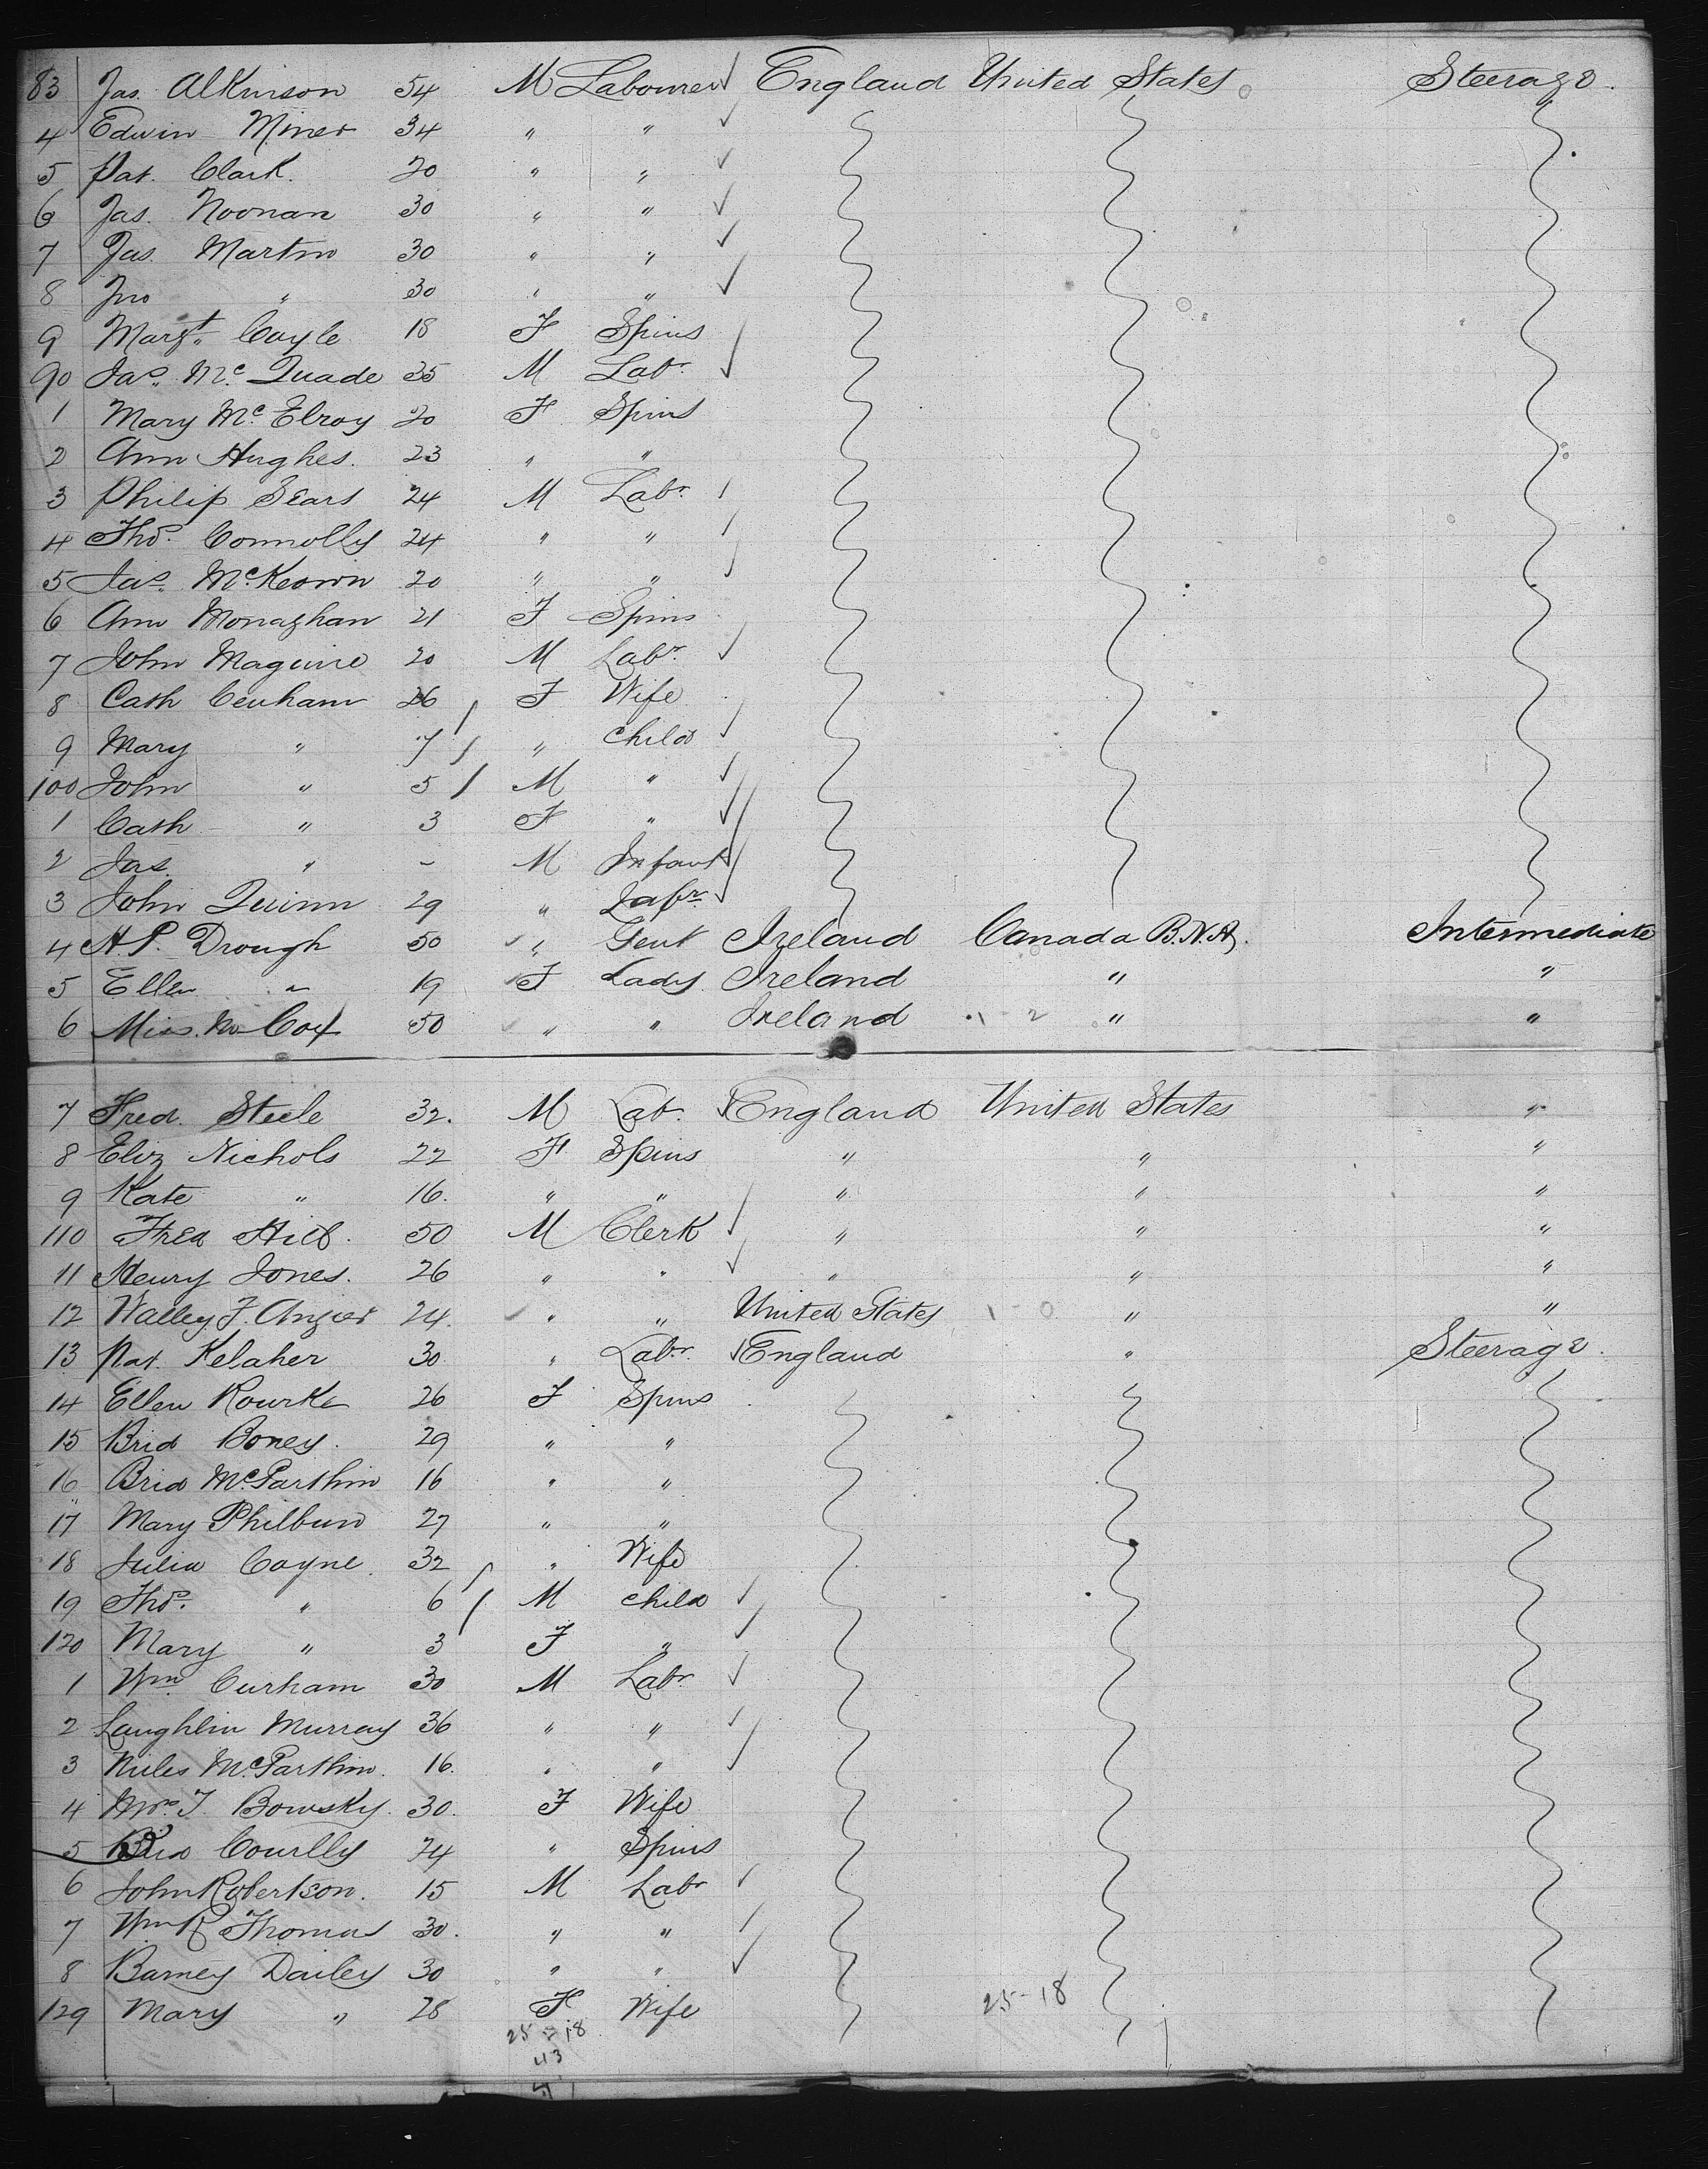 83 Jas. Alkinson 54 M Labourer England United States Steerage
4 Edwin Miner 34 " "
5 Pat. Clark. 20 " "
6 Jas. Noonan 30 " "
7 Jas. Martin 30 " "
8 Jno " 30 " "
9 Margt. Coyle 18 F Spins
90 Jas. Mc Quade 35 M Labr.
1 Mary Mc Elroy 20 F Spins
2 Ann Hughes. 23 " "
3 Philip Sears 24 M Labr.
4 Thos. Connolly 24 " "
5 Jas. McKeown 20 " "
6 Ann Monaghan 21 F Spins
7 John Maguire 20 M Labr.
8 Cath 26 F Wife
9 Mary " 7 " Child
100 John " 5 M "
1 Cath " 3 F "
2 Jas. " - M Infant
3 John Quinn 29 " Labr.
4 H.P. Drough 50 " Gent Ireland Canada B.N.A. Intermediate
5 Ellen " 19 F Lady Ireland " "
6 Miss. M Cox 50 " " Ireland 1 - 2 " "
7 Fred. Steele 32. M Lab. England United States "
8 Eliz Nichols 22 F Spins " " "
9 Kate " 16. " " " " "
110 Fred Hill. 50 M Clerk " " "
11 Henry Jones. 26 " " " " "
12 Walley F. Angier 24. " " United States 1 - 0 " "
13 Pat. Kelaher 30 " Labr. England " Steerage.
14 Ellen Rourke 26 F Spins
15 Brid Boney. 29 " "
16 Brid McParthin 16 " "
17 Mary Philbin 27 " "
18 Julia Coyne. 32 " Wife
19 Thos. " 6 M Child
120 Mary " 3 F "
1 Wm. Curham 30 M Labr
2 Laughlin Murray 36 " "
3 Miles McParthin. 16. " "
4 Mrs. T. Bowsky. 30. F Wife
5 Brid Courlly 24 " Spins
6 John Robertson. 15 M Labr
7 Wm R Thomas 30. " "
8 Barney Dailey 30 " "
129 Mary " 28 F Wife 25-18
25-18
43